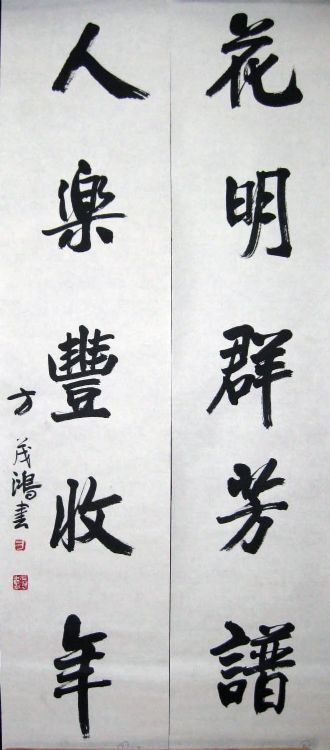 花明群芳譜
人楽豐收年
方茂鴻書